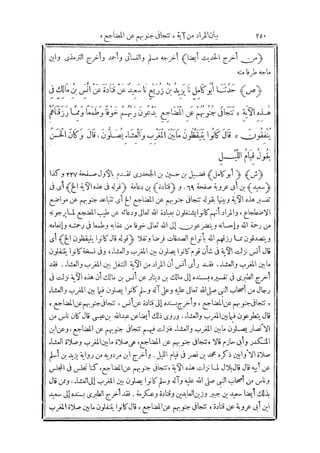 ٢٥٠ بيان المراد من آية ، تتجافى جنوبهم عن المضاجع ،
﴿من أخرج الحديث أيضا﴾ أخرجه مسلم والنسائى وأحمد وأخرج الترمذى وابن
ماجه طرفا منه
﴿ص﴾ حدثنا أبو كامل نا يزيد بن زريع نا سعيد عن قتادة عن أنس بن مالك فى
هذه الآية « تتجافى جنوبهم عن المضاجع يدعون ربهم خوفا وطمعا ومما رزقناهم
ينفقون » قال كانوا يتيقظون ما بين المغرب والعشاء يصلون ، قال وكان الحسن
يقول قيام الليل
﴿ش﴾ ﴿أبو كامل﴾ فضيل بن حسين بن الجحدرى تقدم بالأول صفحة ٢٣٧ وكذا
﴿سعيد﴾ بن أبى عروبة صفحة ٦٩ و ﴿قتادة﴾ بن دعامة ﴿قوله فى هذه الآية الخ﴾ أى فى
تفسير هذه الآية وبينها بقوله تتجافى جنوبهم عن المضاجع الخ أى تتباعد جنوبهم عن مواضع
الاضطجاع ، والمراد أنهم كانوا يشتغلون بعبادة الله تعالى ودعائه عن طيب المضجع لما يرجونه
من رحمة الله وإحسانه ويتضرعون إلى الله تعالى خوفا من عقابه وطمعا فى رحمته وإنعامه
ويتصدقون مما رزقهم الله بأنواع الصدقات فرضا ونفلا ﴿قوله قال كانوا يتيقظون الخ﴾ أى
قال أنس نزلت الآية فى شأن قوم كانوا يصلون بين المغرب والعشاء، وفى نسخة كانوا يتنفلون
ما بين المغرب والعشاء. فقد رأى أنس أن المراد من الآية التنفل بين المغرب والعشاء. فقد
أخرج الطبرى فى تفسيره بسنده إلى مالك بن دينار عن أنس بن مالك أن هذه الآية نزلت فى
رجال من أصحاب النبى صلى الله تعالى عليه وعلى آله وسلم كانوا يصلون فيما بين المغرب والعشاء
، تتجافى جنوبهم عن المضاجع ، وأخرج بسنده إلى قتادة عن أنس ، تتجافى جنوبهم عن المضاجع ،
قال يتطوعون فيما بين المغرب والعشاء. وروى ذلك أيضا عن عبد الله بن عيسى قال كان ناس من
الأنصار يصلون ما بين المغرب والعشاء فنزلت فيهم تتجافى جنوبهم عن المضاجع، وعن ابن
المنكدر وأبى حازم قالا ، تتجافى جنوبهم عن المضاجع، هى صلاة ما بين المغرب وصلاة العشاء
صلاة الأوابين ذكره محمد بن نصر فى قيام الليل. وأخرج ابن مردويه من رواية يزيد بن أسلم
عن أبيه قال قال بلال لما نزلت هذه الآية ، تتجافى جنوبهم عن المضاجع، كنا نجلس فى المجلس
وناس من أصحاب النبى صلى الله عليه وآله وسلم كانوا يصلون بين المغرب إلى العشاء، وممن قال
بذلك أيضا سعيد بن جبير وزين العابدين وقتادة وعكرمة. فقد أخرج الطبرى بسنده إلى سعيد
ابن أبى عروبة عن قتادة ، تتجافى جنوبهم عن المضاجع ، قال كانوا يتنفلون ما بين صلاة المغرب